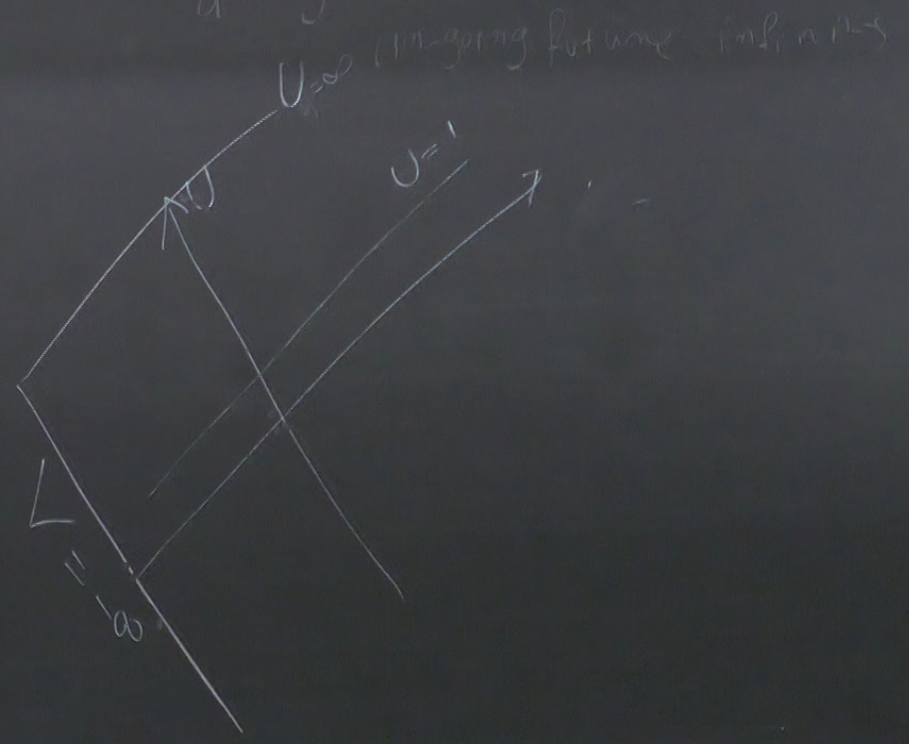 U=∞ (in-going future infinity
U=1
U
V=-∞